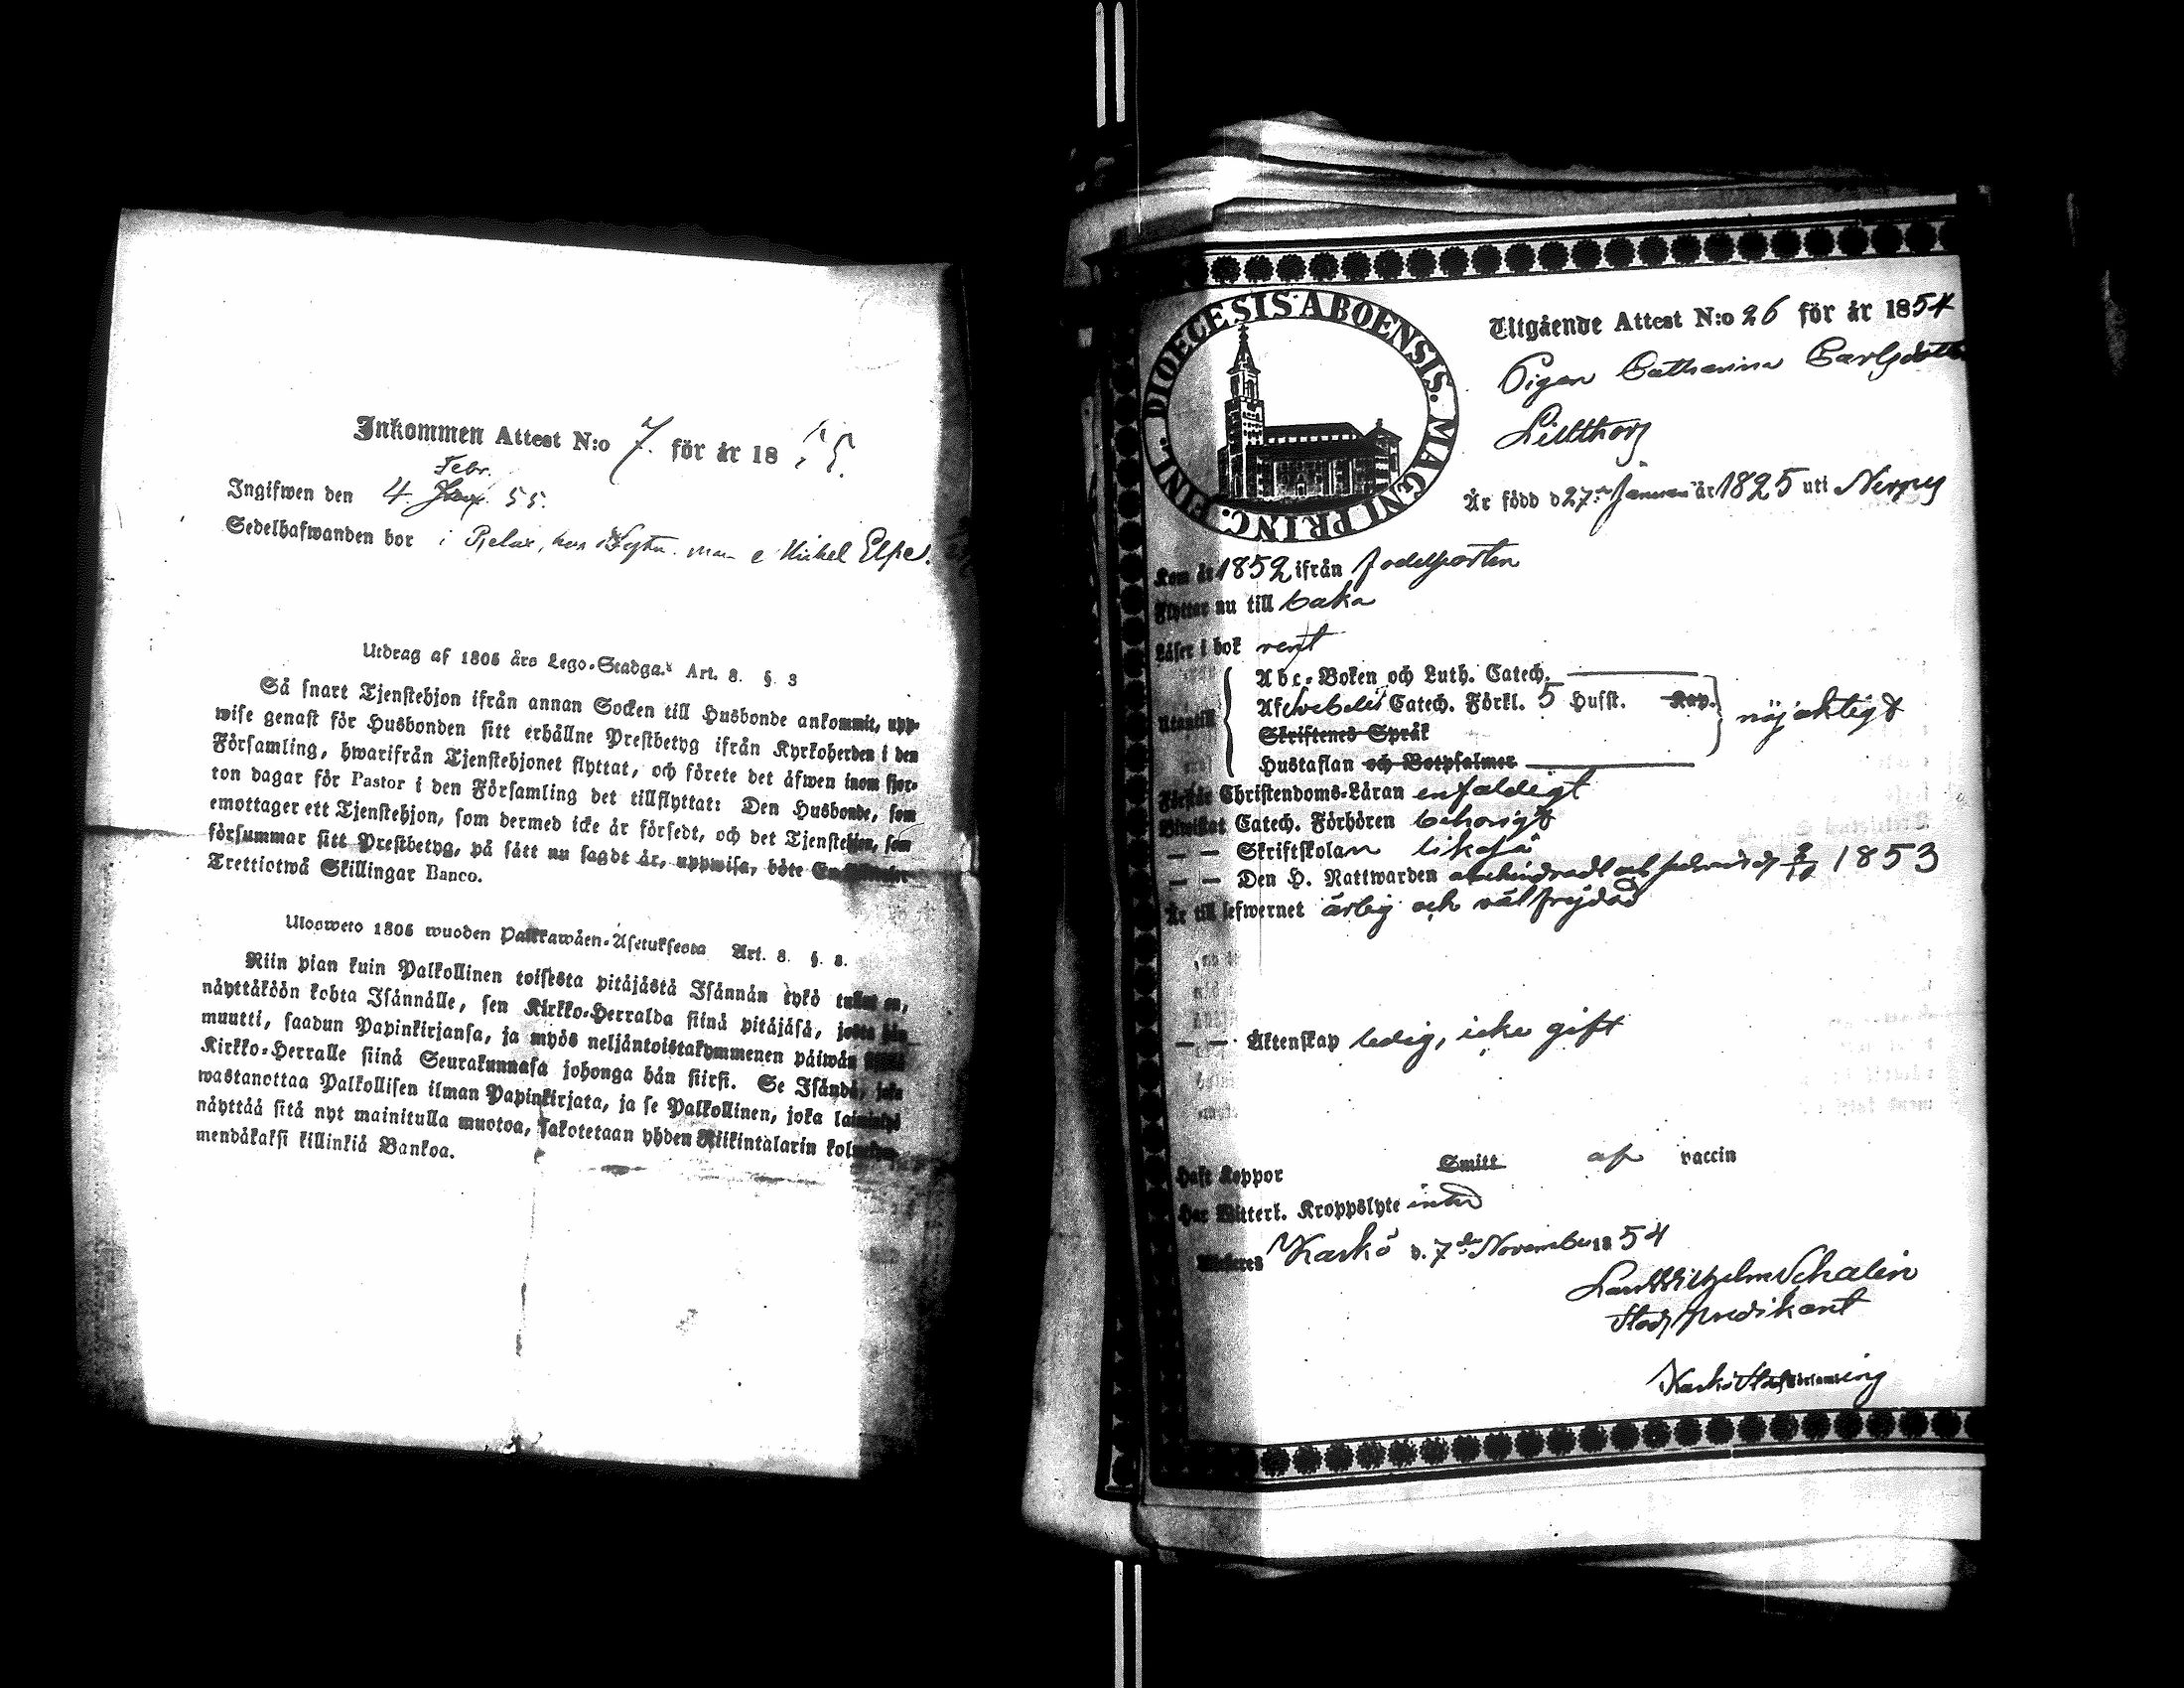 Inkommen Attest N:o 7. för år 18 55.
Febr.
Ingifwen den 4. 55.
Sedelhafwanden bor i Pjelax, hos Michel Elfe.
Utdrag af 1805 års Lego-Stadga. Art. 8. § 3
Så snart Tjenstehjon ifrån annan Socken till Husbonde ankommit, upp-
wise genast för Husbonden sitt erhållne Prestbetyg ifrån Kyrkoherden i den
Församling, hwarifrån Tjenstehjonet flyttat, och förete det äfwen inom fjor-
ton dagar för Pastor i den Församling det tillflyttat: Den Husbonde, som
emottager ett Tjenstehjon, som dermed icke är försedt, och det Tjenstehjon, som
försummar sitt Prestbetyg, på sätt nu sagdt är, uppwisa, böte En
Trettiotwå Skillingar Banco.
Ulosweto 1805 wuoden Palkkawäen-Asetuksesta Art. 8. §. 3.
Niin pian kuin Palkollinen toisesta pitäjästä Isännän tykö tullut on,
näyttäköön kohta Isännälle, sen Kirkko-Herralda siinä pitäjäsä, josta hän
muutti, saadun Papinkirjansa, ja myös neljäntoistakymmenen päiwän
Kirkko-Herralle siinä Seurakunnasa johonga hän siirsi. Se Isändä, joka
wastanottaa Palkollisen ilman Papinkirjata, ja se Palkollinen, joka laiminlyö
näyttää sitä nyt mainitulla muotoa, sakotetaan yhden Riikintalarin
mendäkaksi killinkiä Bankoa.
DIOECESIS ABOENSIS. MAGNI PRINC. FINL.
Utgående Attest N:o 26 för år 1854
Pigan Catharina Carlsdotter
Lillthors
Är född d 27de Januari år 1825 uti Nerpes
Kom år 1852 ifrån födelseorten
Flyttar nu till baka
Läser i bok rent
Utantill
Abc-Boken och Luth. Catech.
Af Svebelii Catech. Förkl. 5 Husst. Kap.
nöjaktigt
Skriftenes Språk
Hustaflan och Botpsalmer
Förstår Christendoms-Läran enfaldigt
Biwistat Catech. Förhören behörigt
— — Skriftskolan likaså
— — Den H. Nattwarden 1853
Är till lefwernet ärlig och välfrejdad
— — Äktenskap ledig, icke gift
Haft Koppor Smitt af vaccin
Har Witterl. Kroppslyte intet
Kaskö d. 7de November 1854
Carl Wilhelm Schalin
Stadspredikant
Kaskö Stads Församling